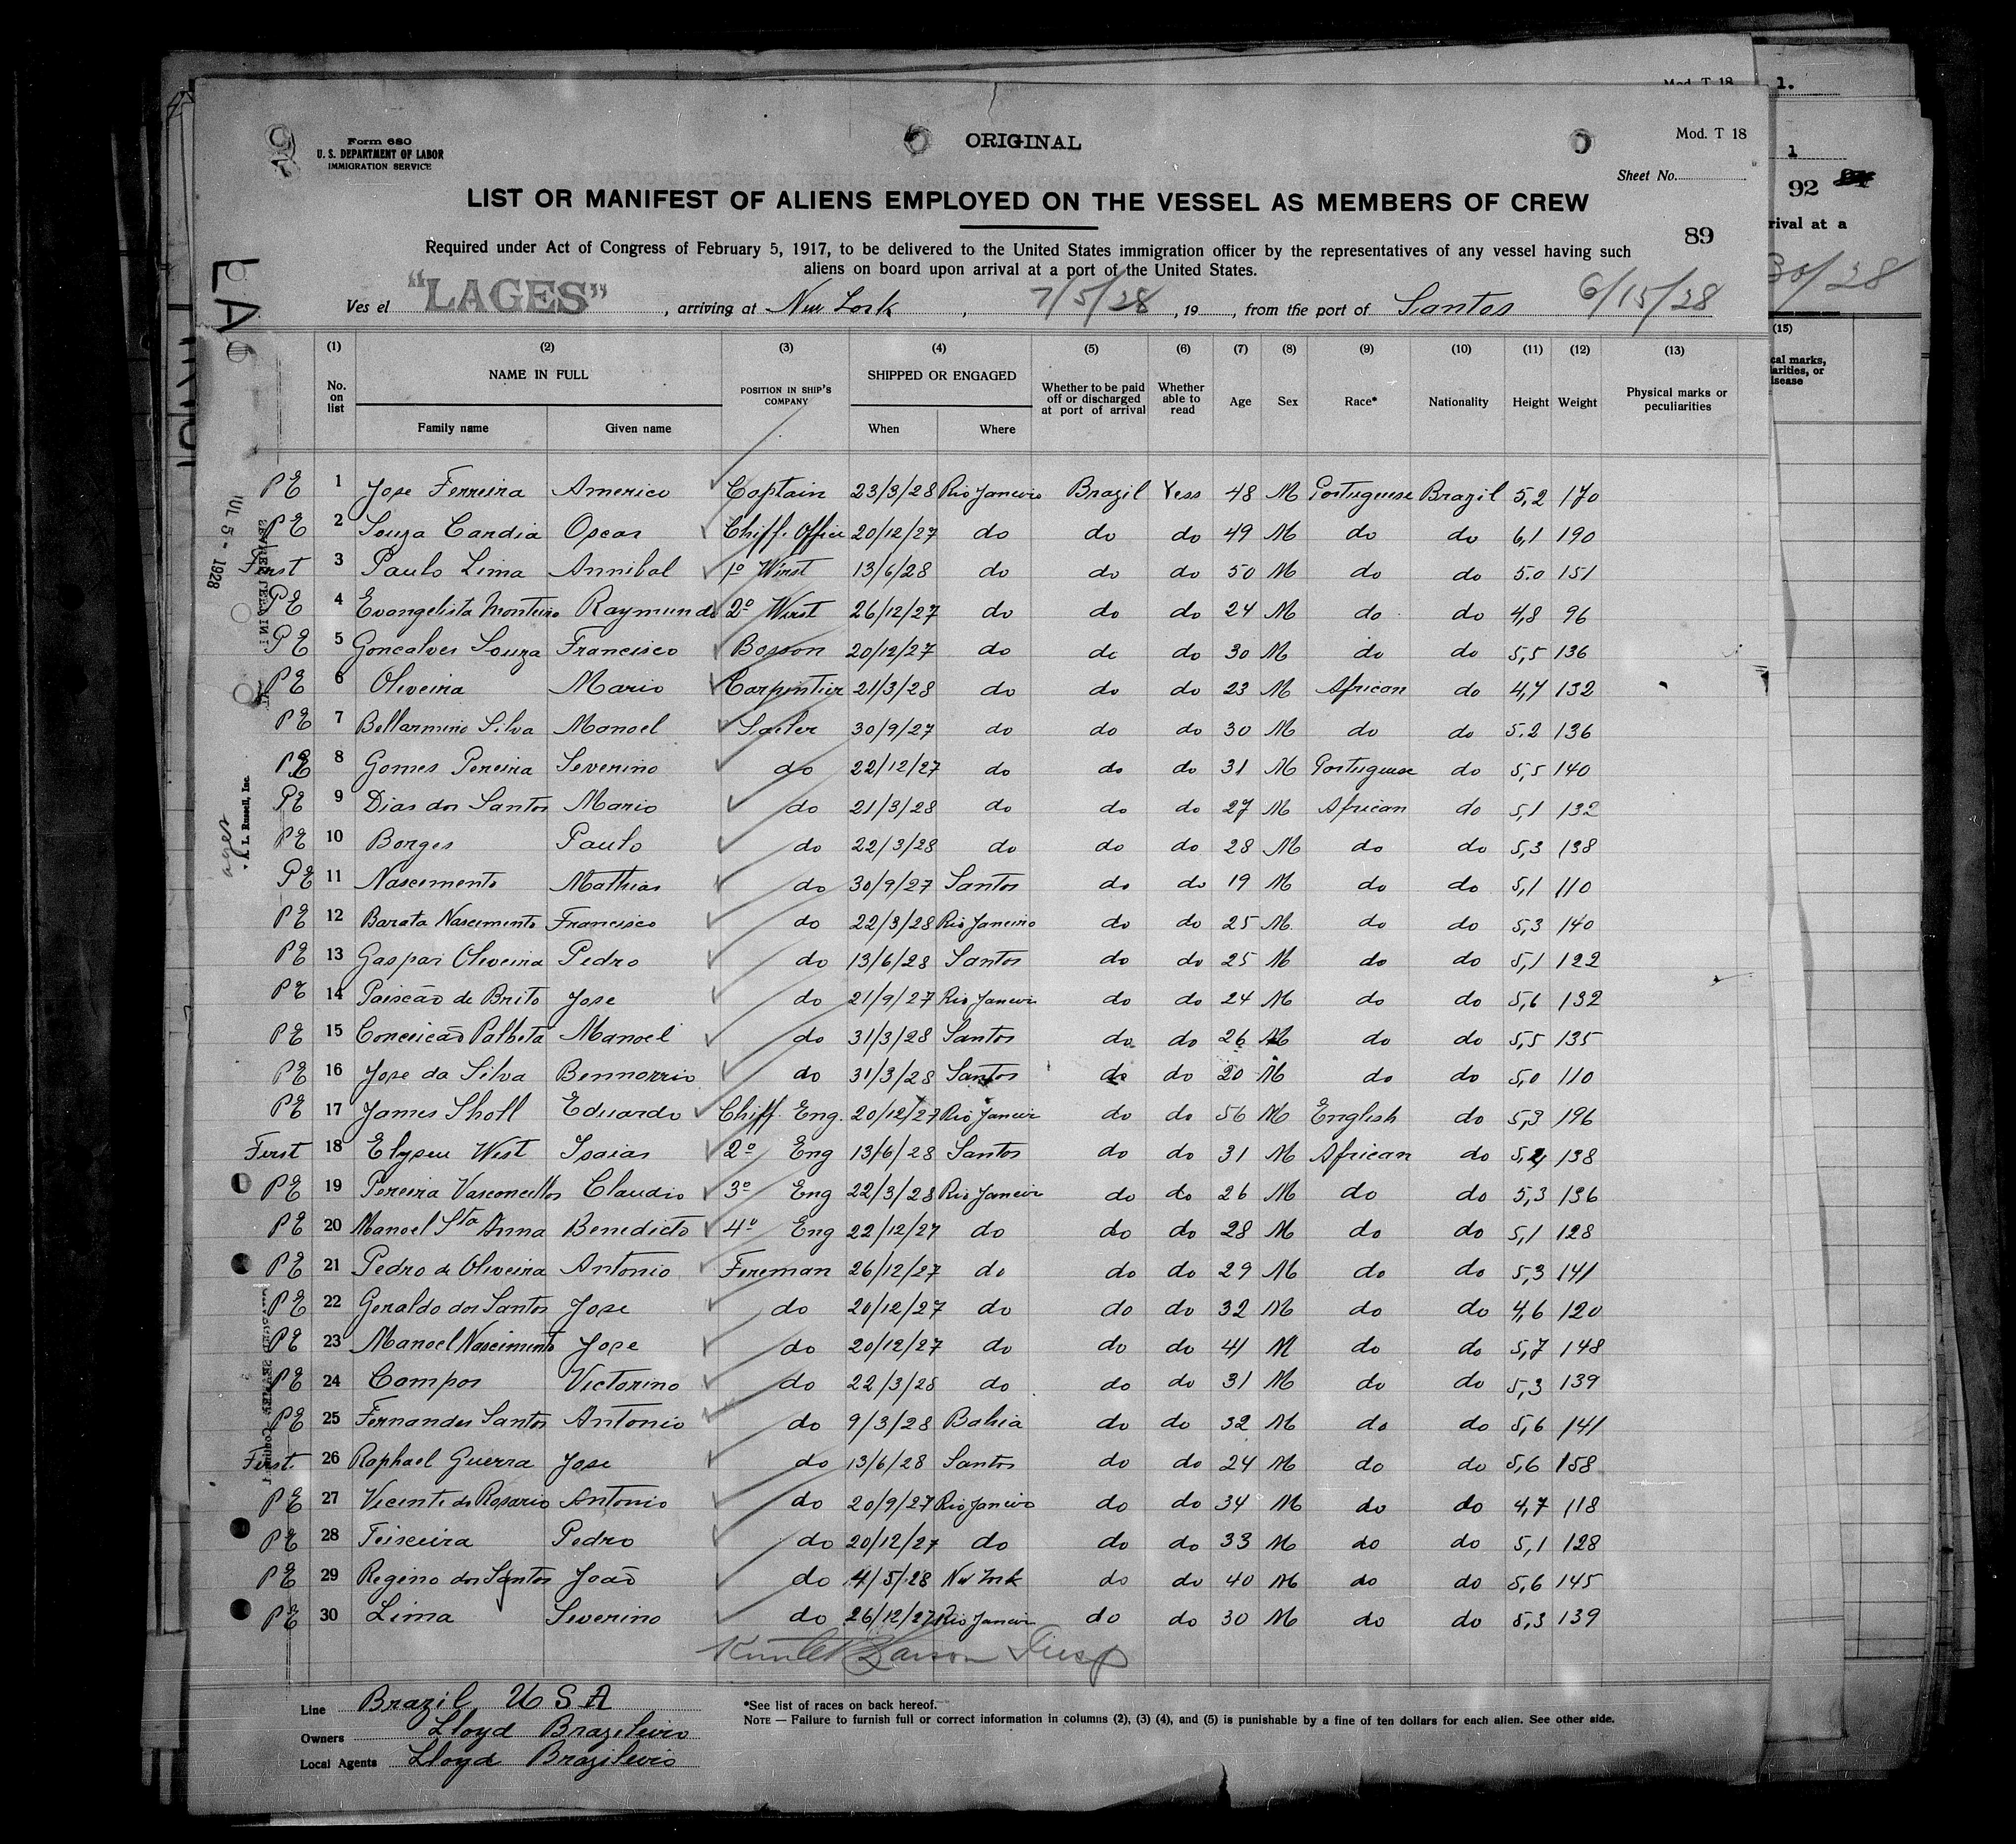 Form 680
U. S. DEPARTMENT OF LABOR
IMMIGRATION SERVICE
ORIGINAL
Mod. T 18
Sheet No.
LIST OR MANIFEST OF ALIENS EMPLOYED ON THE VESSEL AS MEMBERS OF CREW
89
Required under Act of Congress of February 5, 1917, to be delivered to the United States immigration officer by the representatives of any vessel having such
aliens on board upon arrival at a port of the United States.
Ves el "LAGES", arriving at New York, 7/5/28, 19, from the port of Santos 6/15/28
(1) (2) (3) (4) (5) (6) (7) (8) (9) (10) (11) (12) (13)
No. on list NAME IN FULL Family name Given name POSITION IN SHIP'S COMPANY SHIPPED OR ENGAGED When Where Whether to be paid off or discharged at port of arrival Whether able to read Age Sex Race* Nationality Height Weight Physical marks or peculiarities
PE 1 Jose Ferreira Americo Captain 23/3/28 Rio Janeiro Brazil Yess 48 M Portuguese Brazil 5,2 170
PE 2 Souza Cardia Oscar Chiff. Officer 20/12/27 do do do 49 M do do 6,1 190
First 3 Paulo Lima Annibal 1º Wirst 13/6/28 do do do 50 M do do 5.0 151
PE 4 Evangelista Monteiro Raymundo 2º Wirst 26/12/27 do do do 24 M do do 4,8 96
PE 5 Goncalves Souza Francisco Bosson 20/12/27 do do do 30 M do do 5,5 136
PE 6 Oliveira Mario Carpentier 21/3/28 do do do 23 M African do 4,7 132
PE 7 Bellarmino Silva Manoel Sailer 30/9/27 do do do 30 M do do 5.2 136
PE 8 Gomes Pereira Severino do 22/12/27 do do do 31 M Portuguese do 5,5 140
PE 9 Dias dos Santos Mario do 21/3/28 do do do 27 M African do 5,1 132
PE 10 Borges Paulo do 22/3/28 do do do 28 M do do 5,3 138
PE 11 Nascimento Mathias do 30/9/27 Santos do do 19 M do do 5,1 110
PE 12 Barata Nascimento Francisco do 22/3/28 Rio Janeiro do do 25 M do do 5,3 140
PE 13 Gaspar Oliveira Pedro do 13/6/28 Santos do do 25 M do do 5,1 122
PE 14 Paiscão de Brito Jose do 21/9/27 Rio Janeiro do do 24 M do do 5,6 132
PE 15 Conceicão Palheta Manoel do 31/3/28 Santos do do 26 M do do 5,5 135
PE 16 Jose da Silva Bennorrio do 31/3/28 Santos do do 20 M do do 5,0 110
PE 17 James Sholl Eduardo Chiff. Eng. 20/12/27 Rio Janeiro do do 56 M English do 5,3 196
First 18 Elyseu West Isaias 2º Eng 13/6/28 Santos do do 31 M African do 5,2 138
PE 19 Pereira Vasconcellos Claudio 3º Eng 22/3/28 Rio Janeiro do do 26 M do do 5,3 136
PE 20 Manoel Sta Anna Benedicto 4º Eng 22/12/27 do do do 28 M do do 5,1 128
PE 21 Pedro de Oliveira Antonio Fireman 26/12/27 do do do 29 M do do 5,3 141
PE 22 Geraldo dos Santos Jose do 20/12/27 do do do 32 M do do 4,6 120
PE 23 Manoel Nascimento Jose do 20/12/27 do do do 41 M do do 5,7 148
PE 24 Campos Victorino do 22/3/28 do do do 31 M do do 5,3 139
PE 25 Fernandes Santos Antonio do 9/3/28 Bahia do do 32 M do do 5,6 141
First 26 Raphael Guerra Jose do 13/6/28 Santos do do 24 M do do 5,6 158
PE 27 Vicente do Rosario Antonio do 20/9/27 Rio Janeiro do do 34 M do do 4,7 118
PE 28 Teixeira Pedro do 20/12/27 do do do 33 M do do 5,1 128
PE 29 Regino dos Santos João do 4/5/28 New York do do 40 M do do 5,6 145
PE 30 Lima Severino do 26/12/27 Rio Janeiro do do 30 M do do 5,3 139
Larson Insp
Line Brazil U S A
Owners Lloyd Brazileiro
Local Agents Lloyd Brazileiro
*See list of races on back hereof.
NOTE — Failure to furnish full or correct information in columns (2), (3) (4), and (5) is punishable by a fine of ten dollars for each alien. See other side.
JUL 5 - 1928
A. L. Russell, Inc.
Mod. T 18
1.
1
92
rival at a
30/28
(15)
cal marks,
larities, or
isease